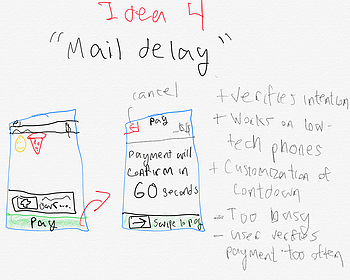 Idea 4
"Mail delay"
cancel
Pay
Payment will
confirm in
60 seconds
Swipe to pay
Pay
+ Verifies intention
+ Works on low-
tech phones
+ Customization of
Contdown
- Too busy
- user verifies
payment too often